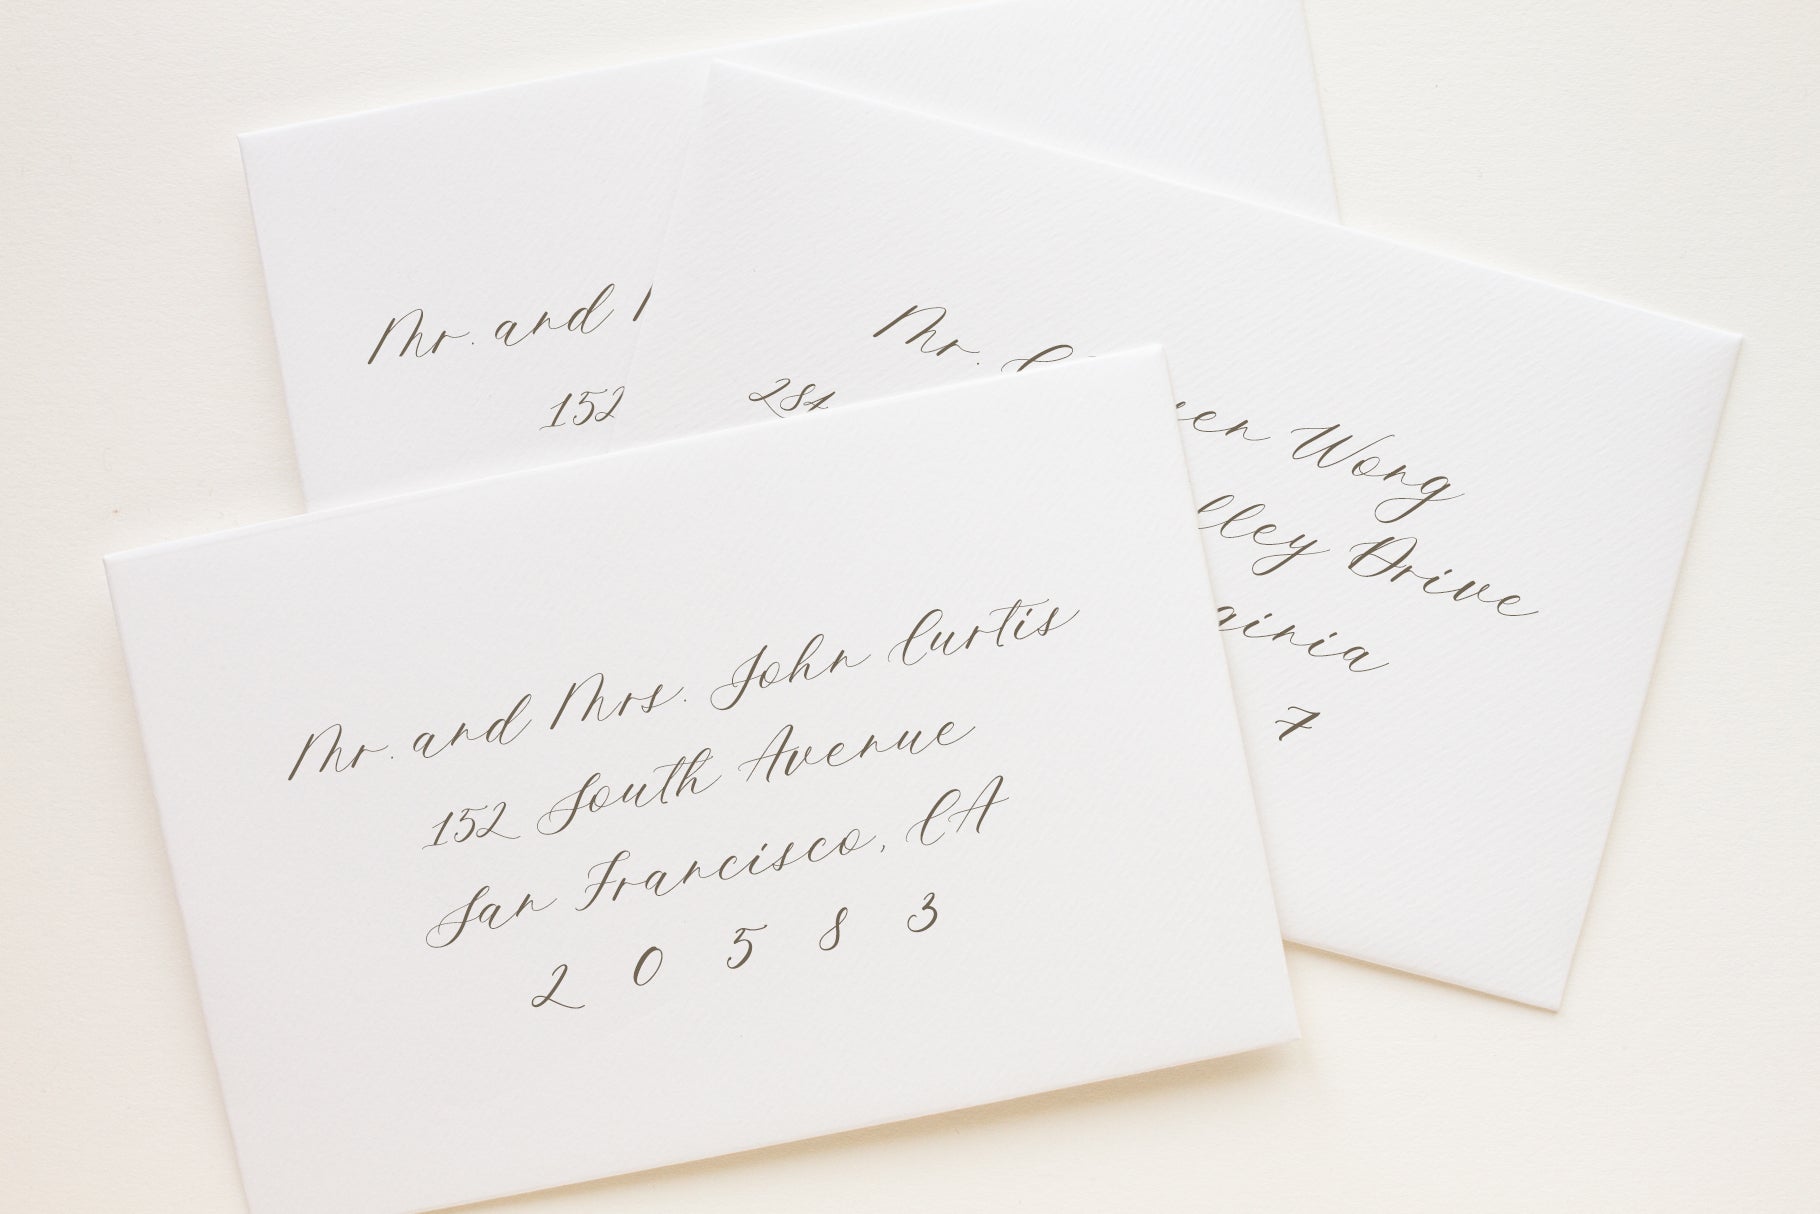 Mr. and
152
Mr.
Wong
284
Drive
7
Mr. and Mrs. John Curtis
152 South Avenue
San Francisco, CA
2 0 5 8 3